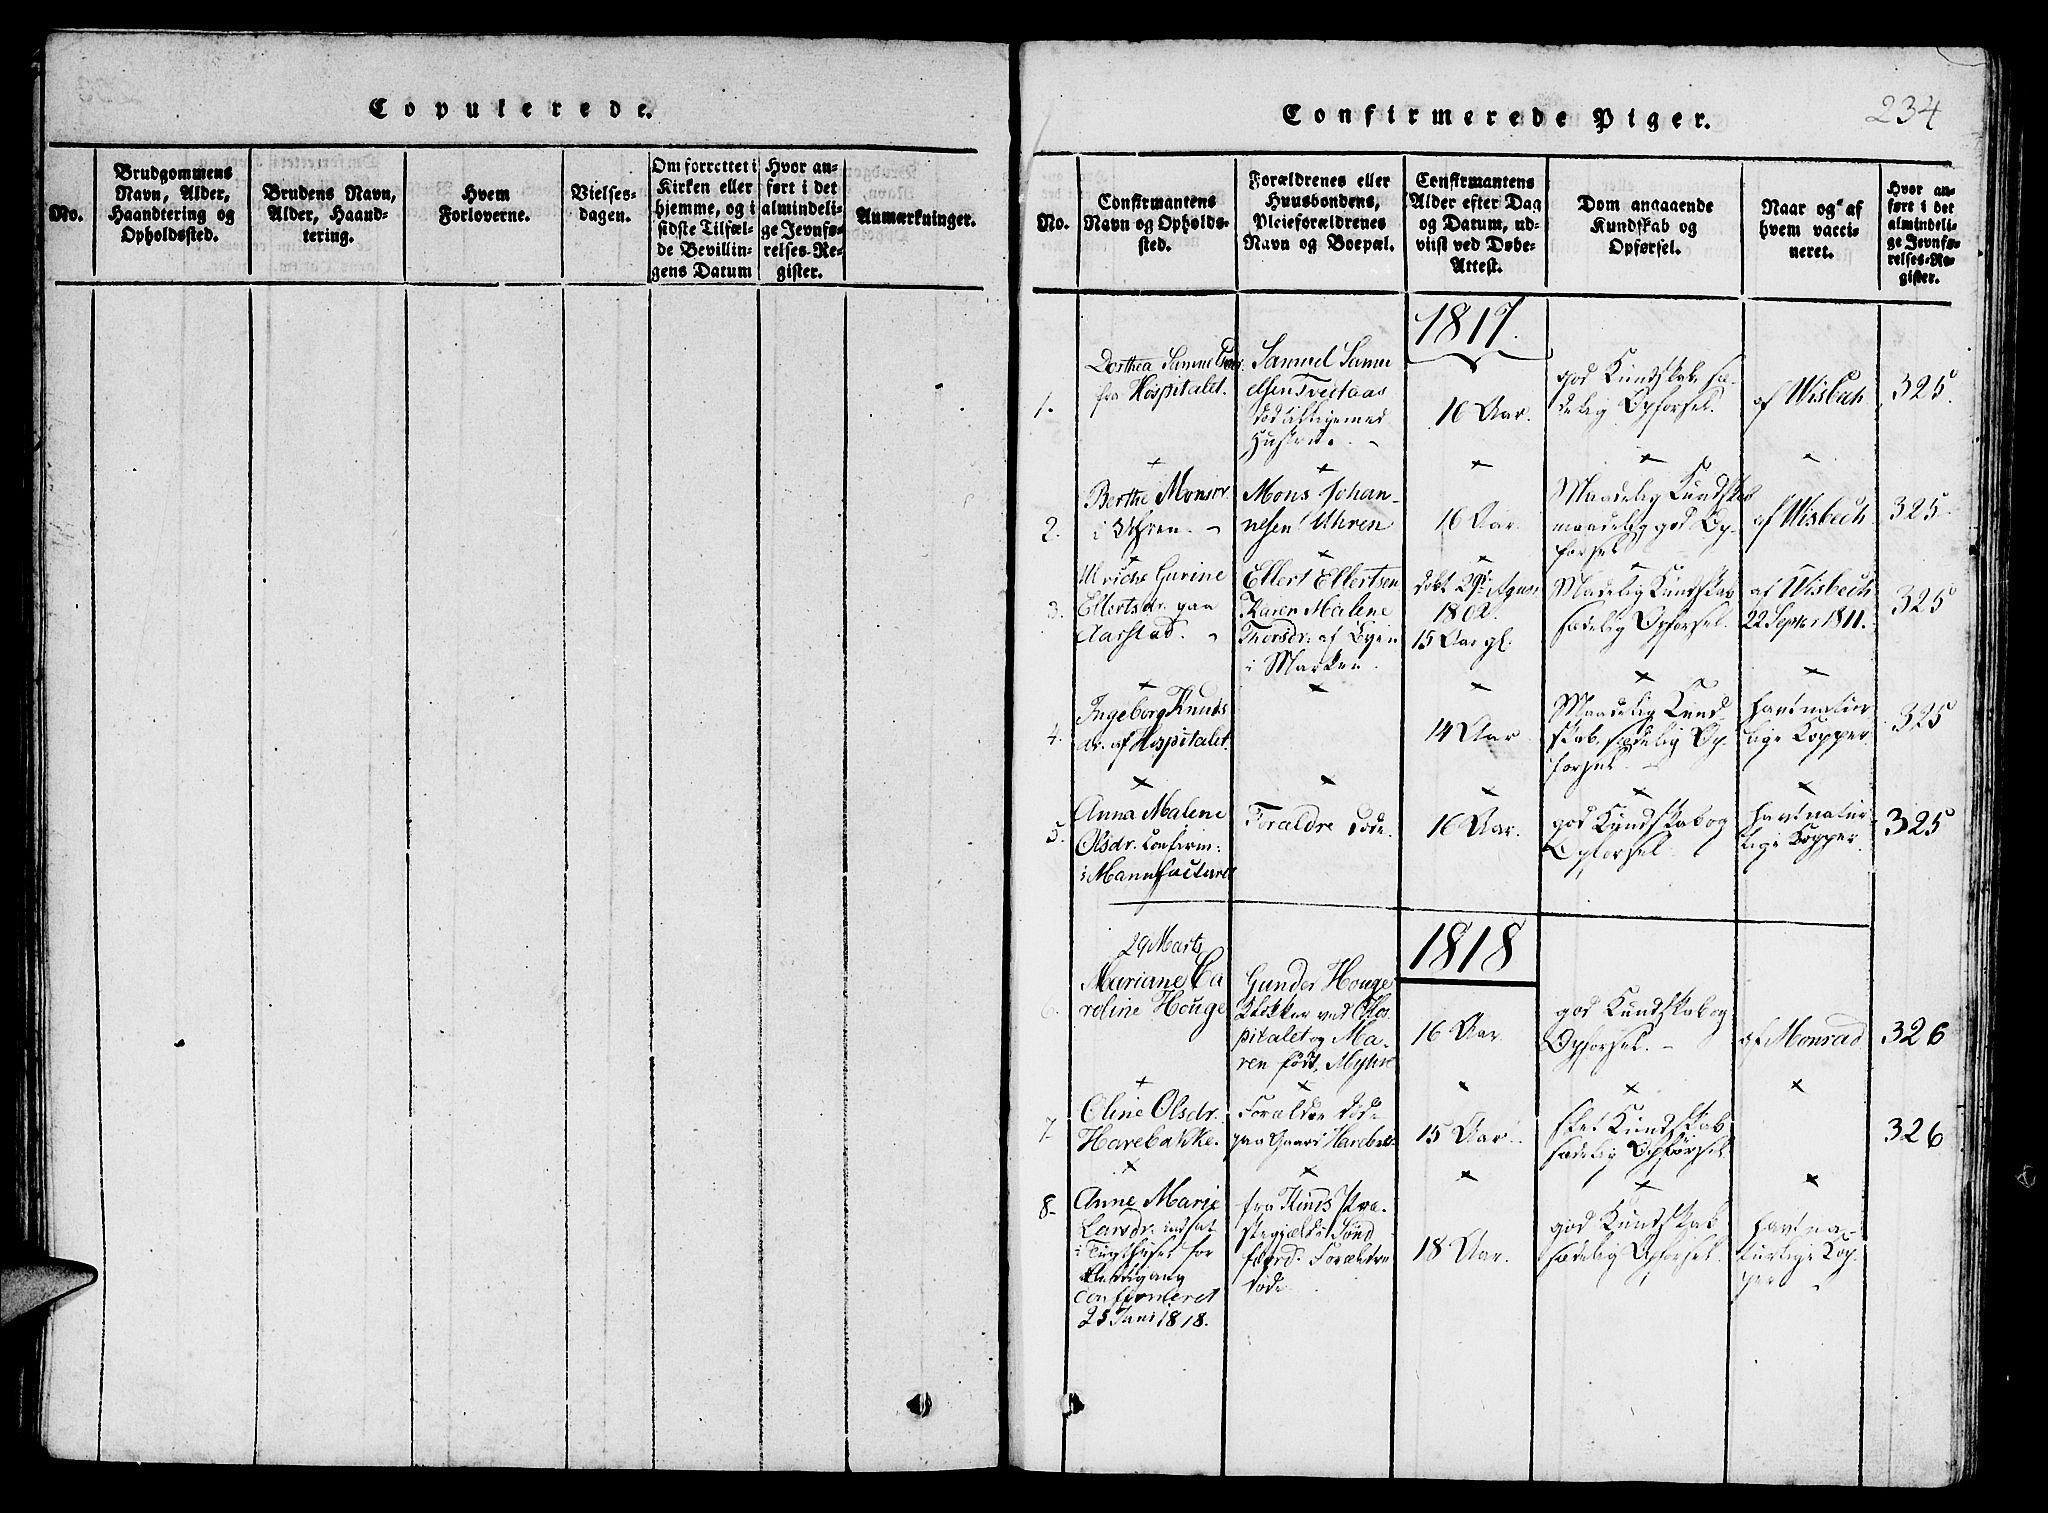 Copulerede.
No.
Brudgommens
Navn, Alder,
Haandtering og
Opholdssted.
Brudens Navn,
Alder, Haand-
tering.
Hvem
Forloverne.
Vielses-
dagen.
Om forrettet i
Kirken eller
hjemme, og i
sidste Tilfæl-
de Bevillin-
gens Datum
Hvor an-
ført i det
almindeli-
ge Jevnfø-
relses-Re-
gister.
Anmærkninger.
Confirmerede Piger.
234
No.
Confirmantens
Navn og Opholds-
sted.
Forældrenes eller
Huusbondens,
Pleieforældrenes
Navn og Boepæl.
Confirmantens
Alder efter Dag
og Datum, ud-
viist ved Døbe-
Attest.
Dom angaaende
Kundskab og
Opførsel.
Naar og af
hvem vacci-
neret.
Hvor an-
ført i det
almindeli-
ge Jevnfø-
relses-Re-
gister.
1817.
1.
Dorthea
fra Hospitalet.
Samuel Samu
elsen
16 Aar.
god Kundskab sæ-
delig Opførsel.
af Wisbech
325.
2.
Berthe Monsdr.
i Uhren.
Mons Johan-
nesen Uhren
16 Aar.
Maadelig Kundskab
maadelig god Op-
førsel
af Wisbech
325.
3.
Ulriche Gurine
Ellertsdr. paa
Aarstad.
Ellert Ellertsen
Karen Malene
Thorsdr. af Byen
i Marken.
døbt 29de
1802.
15 Aar gl.
Madelig Kundskab
sædelig Opførsel.
af Wisbech
22 Septbr 1811.
325
4.
Ingeborg Knuds
dr. af Hospitalet.
14 Aar
Maadelig Kund-
skab, sædelig Op-
førsel.
havt natur
lige Kopper
325
5.
Anna Malene
Olsdr. Confirm:
i Manufacturet
Forældre døde.
16 Aar.
god Kundskab og
Opførsel.
havt natur
lige Kopper.
325
1818
29 Marts
6.
Mariane Ca
roline Houge
Gunder Houge
Klokker ved Hos
pitalet og Ma-
ren født,
16 Aar
god Kundskab og
Opførsel.
af Monrad
326
7.
Oline Olsdr.
Harebakke.
Forældre døde
paa Gaard
15 Aar.
slet Kundskab
sædelig Opførsel
326
8.
Anne Marie
Larsdr. indsat
i Tugthuset for
confirmeret
25 Juni 1818.
fra Kinds Præ-
stegjæld i Sønd
fjord. Forældre
døde.
18 Aar.
god Kundskab
sædelig Opførsel.
havt na-
turlige Kop-
per